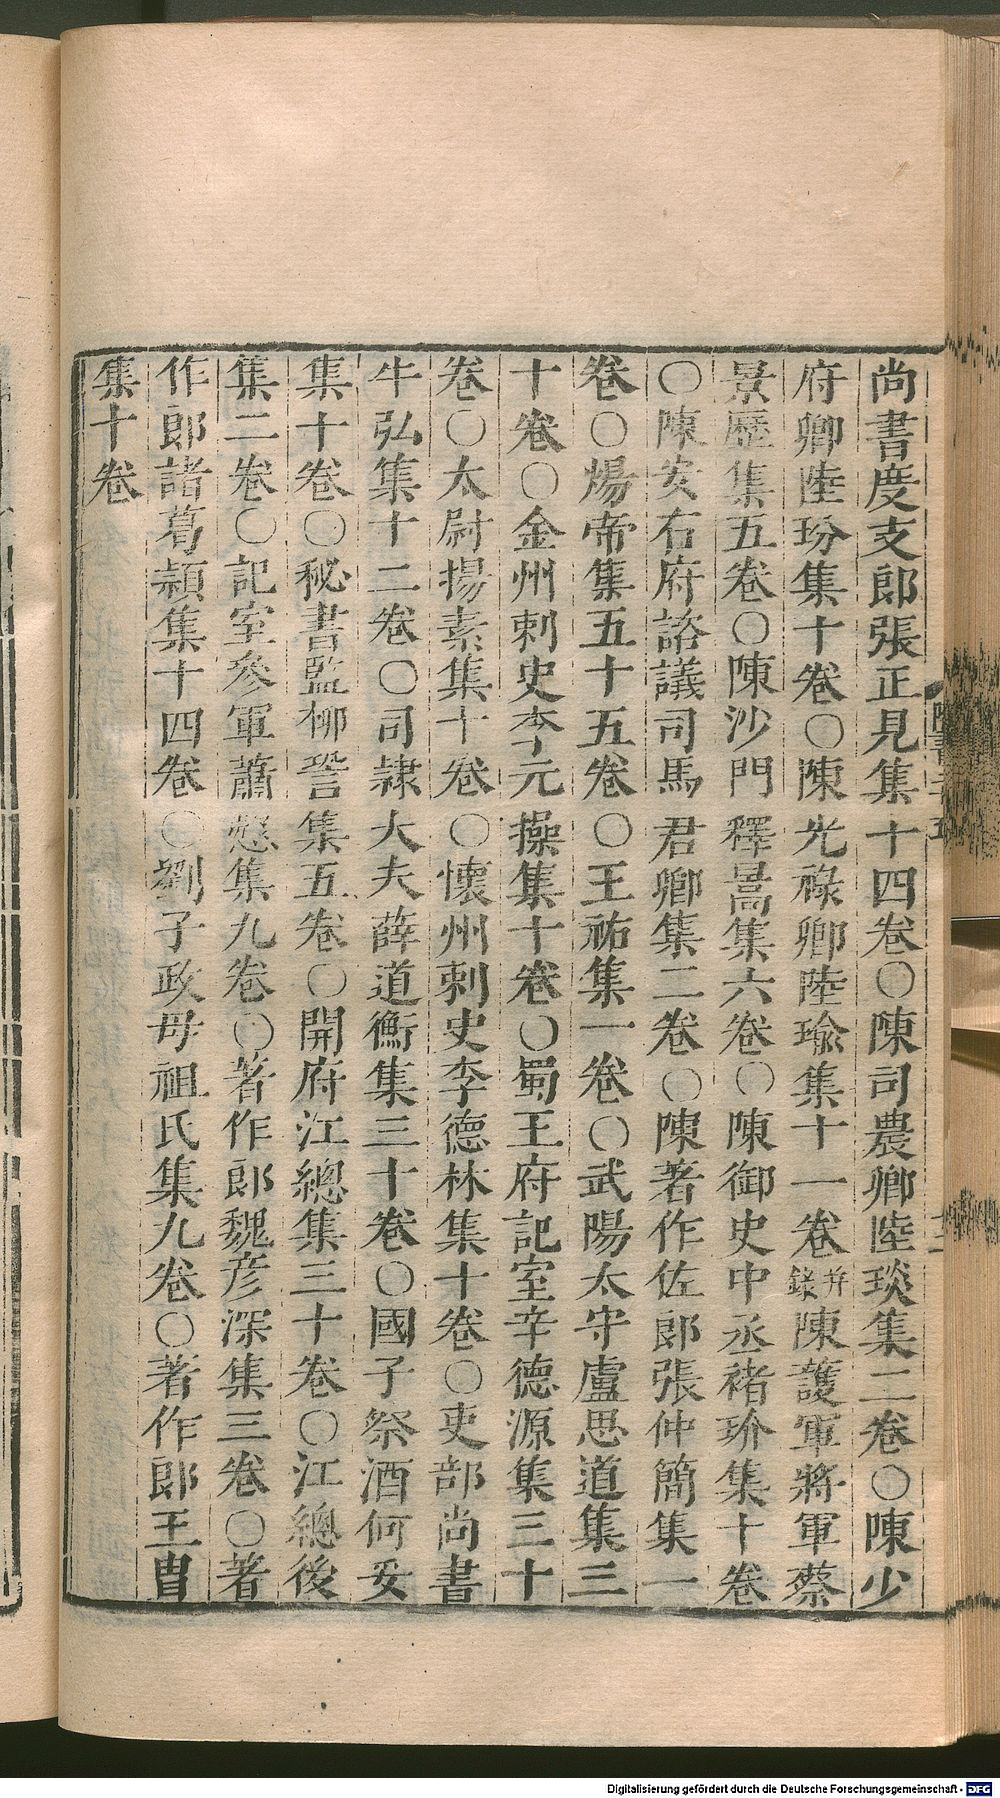 尚書度支郎張正見集十四卷〇陳司農卿陸琰集二卷〇陳少
府卿陸玢集十卷〇陳光祿卿陸瑜集十一卷并錄陳護軍將軍蔡
景歷集五卷〇陳沙門釋暠集六卷〇陳御史中丞褚玠集十卷
〇陳安右府諮議司馬君卿集二卷〇陳著作佐郎張仲簡集一
卷〇煬帝集五十五卷〇王祐集一卷〇武陽太守盧思道集三
十卷〇金州刺史李元操集十卷〇蜀王府記室辛德源集三十
卷〇太尉揚素集十卷〇懷州刺史李德林集十卷〇吏部尚書
牛弘集十二卷〇司隸大夫薛道衡集三十卷〇國子祭酒何妥
集十卷〇秘書監柳䛒集五卷〇開府江總集三十卷〇江總後
集二卷〇記室參軍蕭愨集九卷〇著作郎魏彦深集三卷〇著
作郎諸葛頴集十四卷〇劉子政母祖氏集九卷〇著作郎王胄
集十卷
Digitalisierung gefördert durch die Deutsche Forschungsgemeinschaft - DFG